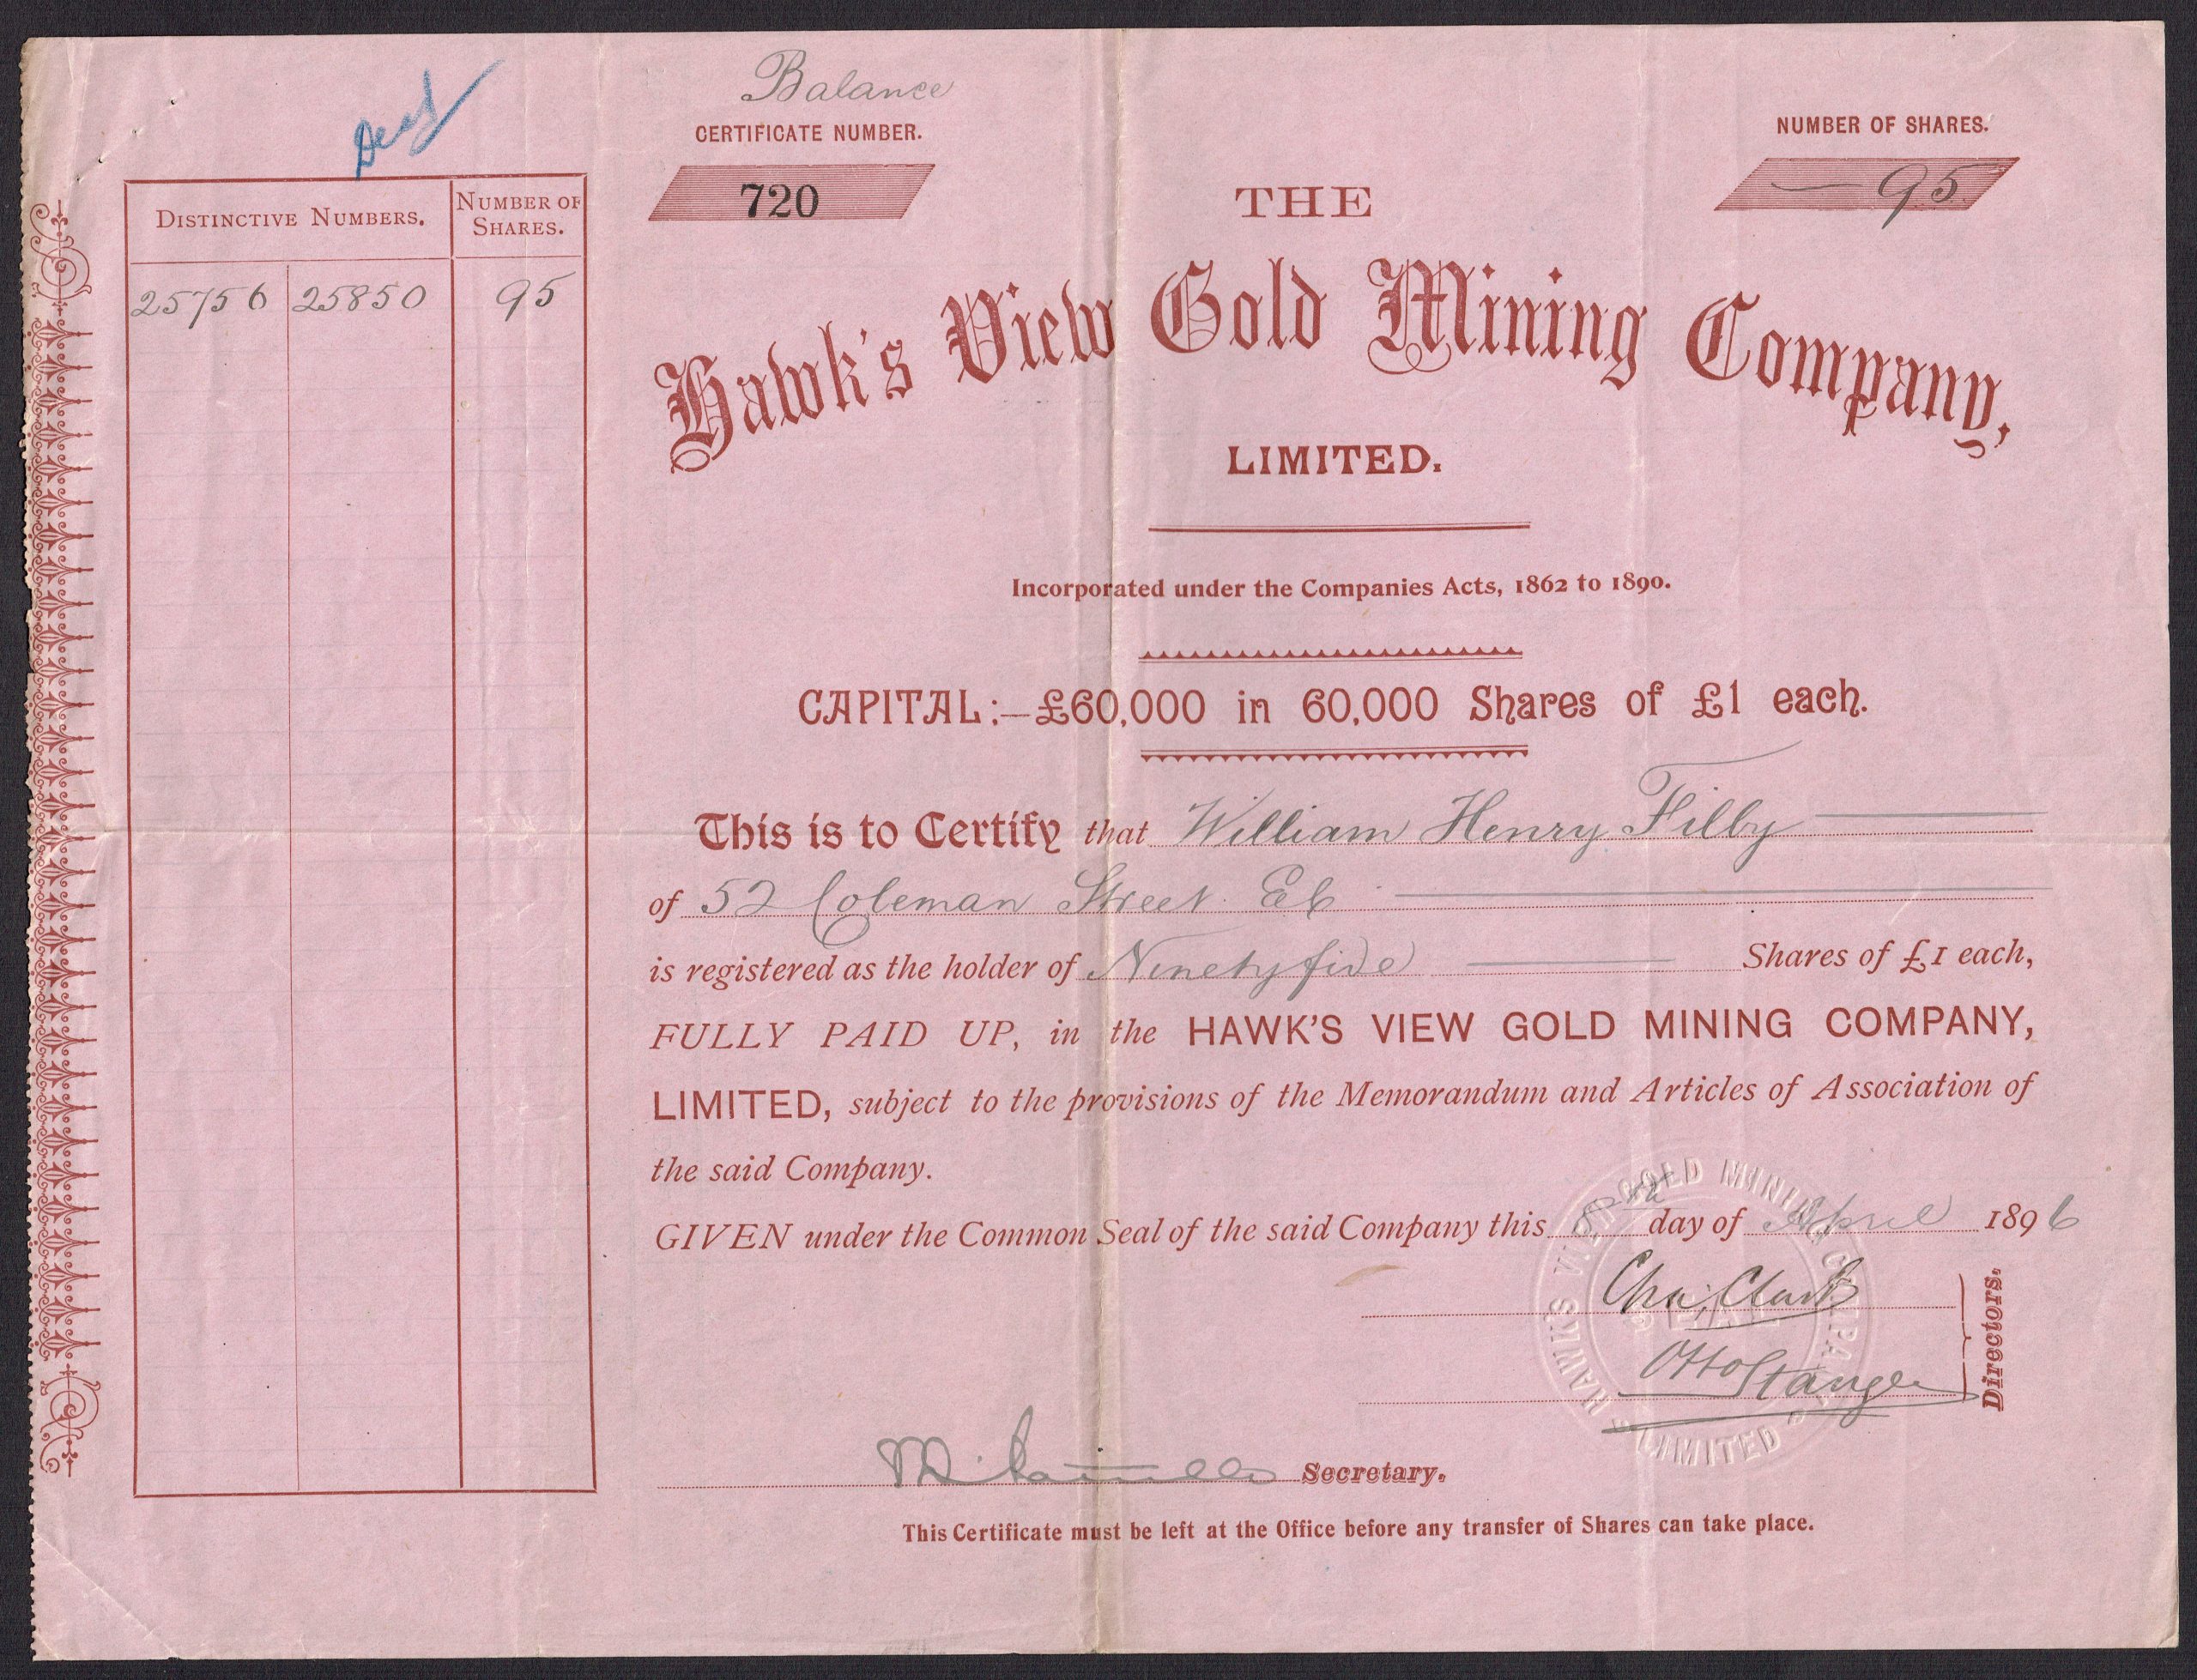 Balance
CERTIFICATE NUMBER.
720
NUMBER OF SHARES.
— 95
DISTINCTIVE NUMBERS.
NUMBER OF SHARES.
25756 25850 95
THE
Hawk's View Gold Mining Company,
LIMITED.
Incorporated under the Companies Acts, 1862 to 1890.
CAPITAL:—£60,000 in 60,000 Shares of £1 each.
This is to Certify that William Henry Filby
of 52 Coleman Street EC
is registered as the holder of Ninety five Shares of £1 each,
FULLY PAID UP, in the HAWK'S VIEW GOLD MINING COMPANY,
LIMITED, subject to the provisions of the Memorandum and Articles of Association of
the said Company.
GIVEN under the Common Seal of the said Company this 8th day of April 1896
Chas. Clark
Otto Stanger
Directors.
Secretary.
HAWK'S VIEW GOLD MINING COMPANY
SEAL
LIMITED
This Certificate must be left at the Office before any transfer of Shares can take place.